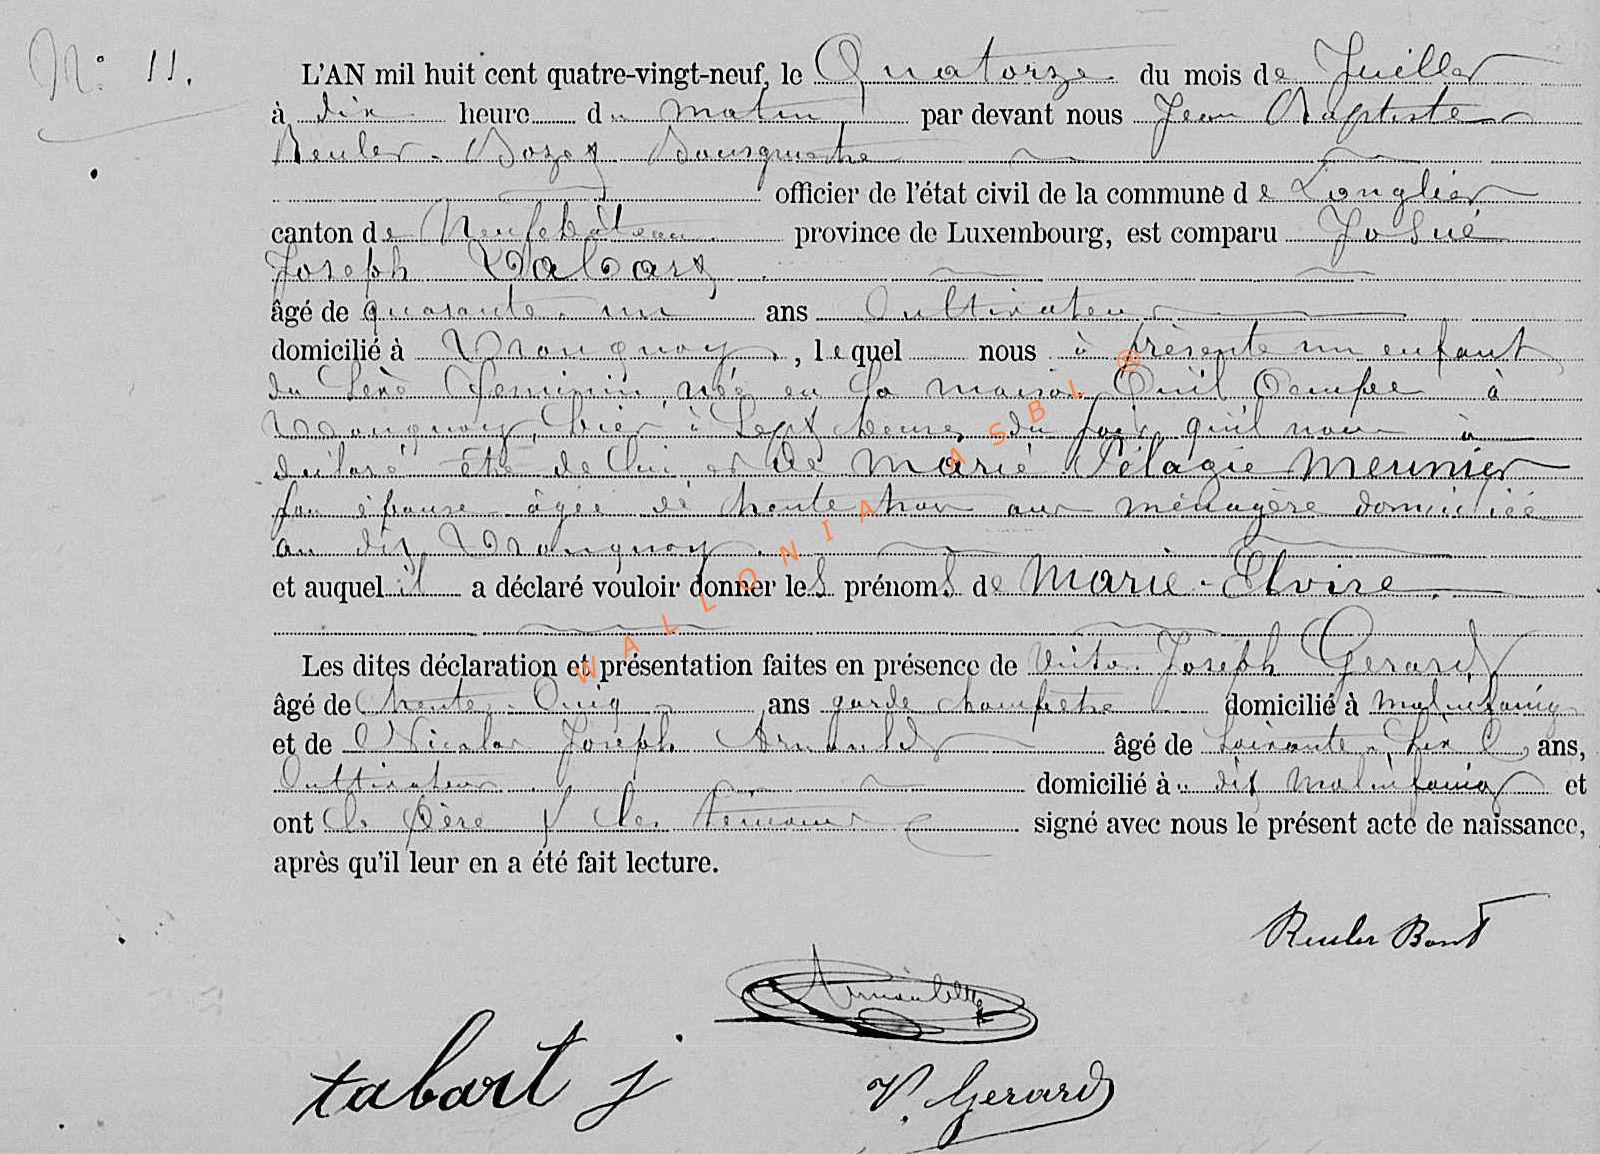 N° 11.
L'AN mil huit cent quatre-vingt-neuf, le Quatorze du mois de Juillet
à dix heure du matin par devant nous Jean Baptiste
Reuler. Bozet Bourgmestre
officier de l'état civil de la commune de Longlier
canton de Neufchâteau province de Luxembourg, est comparu Josué
Joseph Tabart
âgé de quarante un ans Cultivateur
domicilié à Tronquoy, lequel nous à présenté un enfant
du Sexe féminin, née en la maison Qu'il Occupe à
Tronquoy, hier à Sept heures du soir qu'il nous à
déclaré être de lui et de Marie Pélagie Meunier
son épouse âgée de trente trois ans ménagère domiciliée
au dit Tronquoy
et auquel il a déclaré vouloir donner les prénoms de Marie-Elvire.
Les dites déclaration et présentation faites en présence de Victor Joseph Gerard
âgé de trente-Cinq ans garde champêtre domicilié à Malinfaing
et de Nicolas Joseph Arnould âgé de Soixante-dix ans,
Cultivateur domicilié au dit Malinfaing et
ont le père & les témoins signé avec nous le présent acte de naissance,
après qu'il leur en a été fait lecture.
Reuler Bozet
tabart j
V. Gerard
WALLONIA ASBL ®